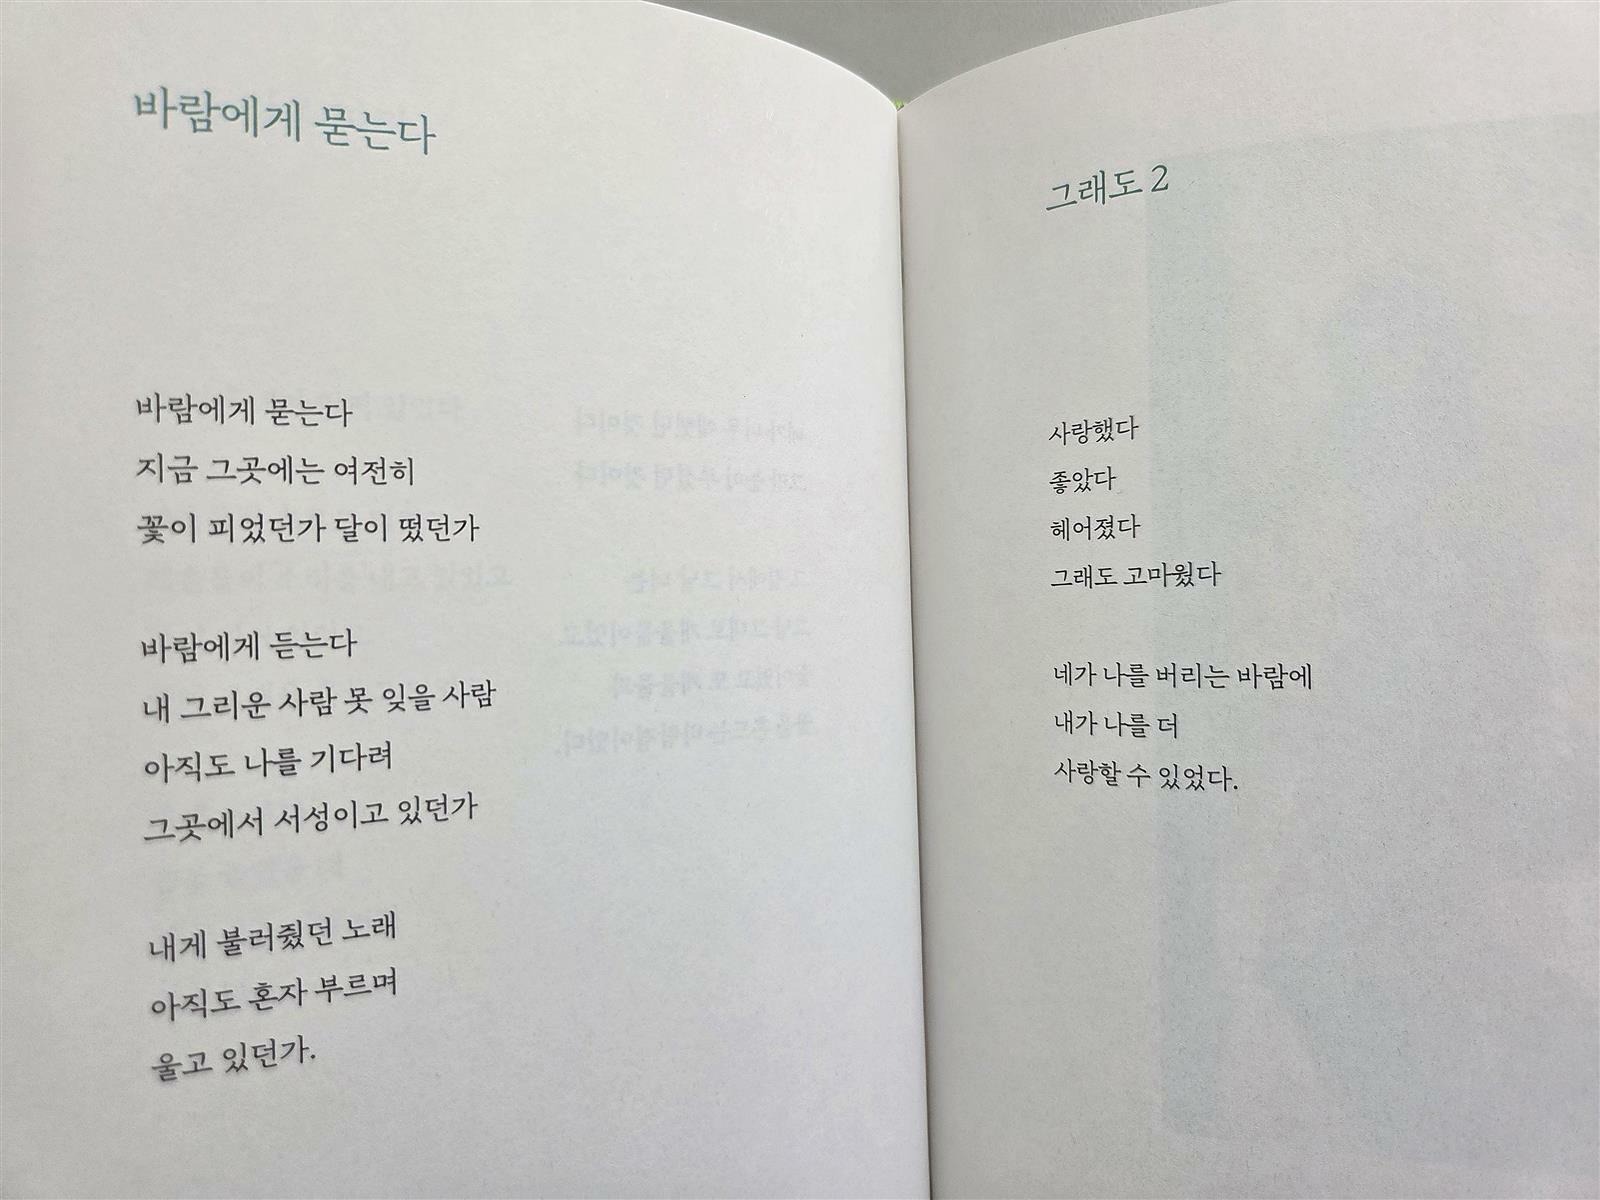 바람에게 묻는다
바람에게 묻는다
지금 그곳에는 여전히
꽃이 피었던가 달이 떴던가
바람에게 듣는다
내 그리운 사람 못 잊을 사람
아직도 나를 기다려
그곳에서 서성이고 있던가
내게 불러줬던 노래
아직도 혼자 부르며
울고 있던가.
그래도 2
사랑했다
좋았다
헤어졌다
그래도 고마웠다
네가 나를 버리는 바람에
내가 나를 더
사랑할 수 있었다.